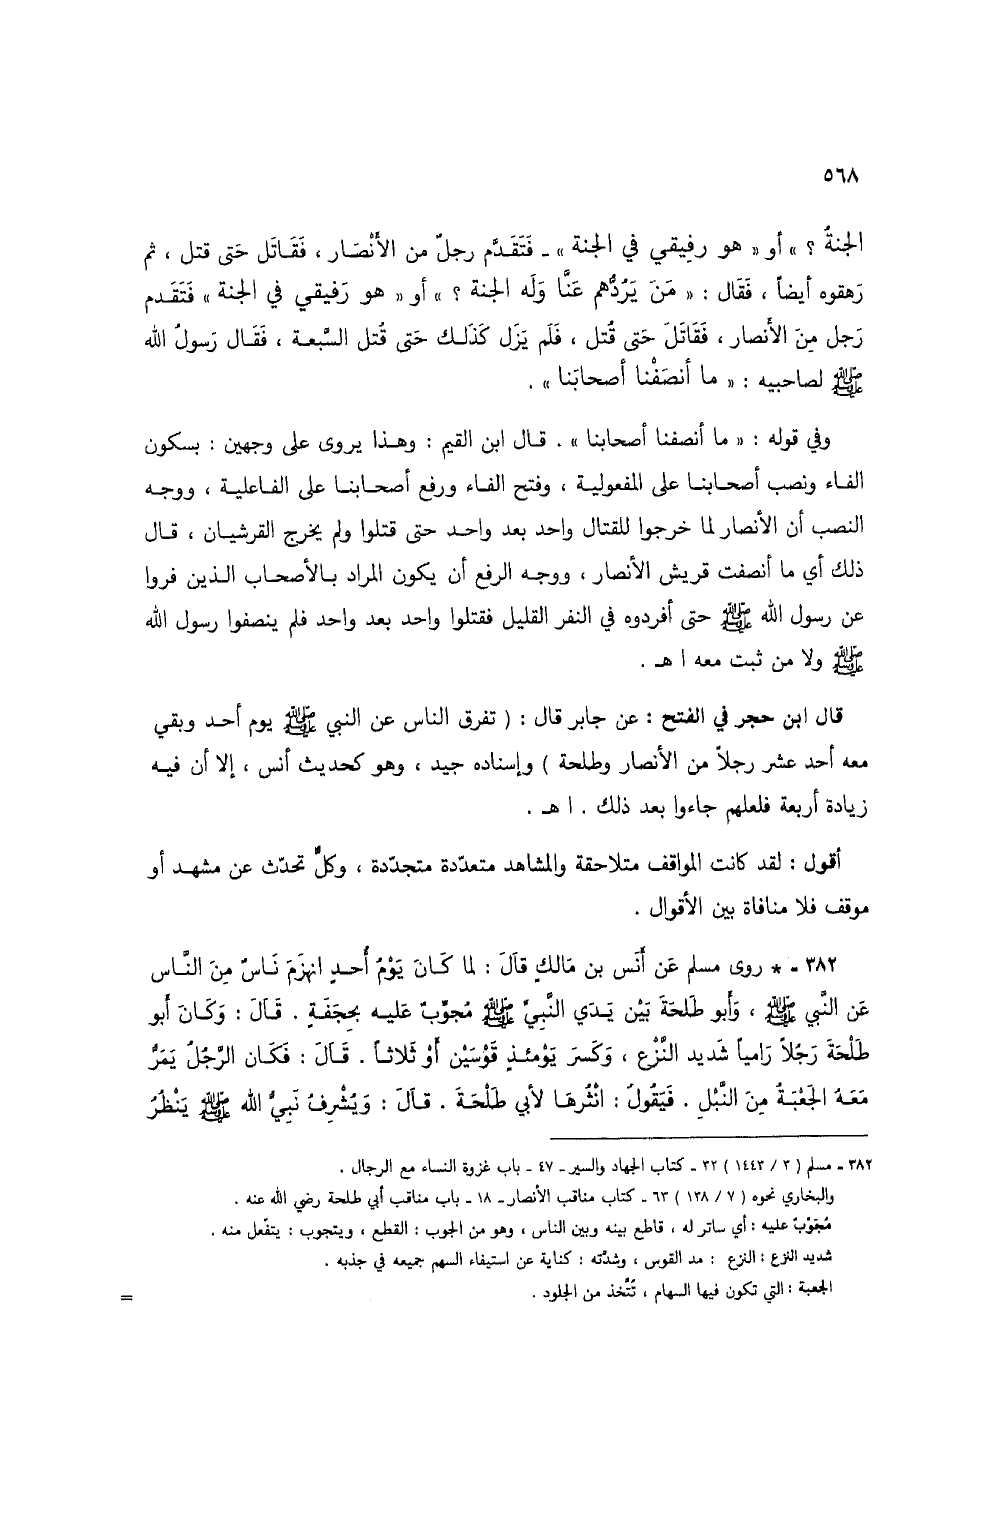 ٥٦٨
الجنةُ ؟ » أو « هو رفِيقي في الجنة » ـ فَتَقَدَّم رجلٌ من الأَنْصَار ، فَقَاتَل حَتى قتل ، ثم
رَهقوه أيضاً ، فَقَال : « مَنَ يَرُدُّهم عَنَّا وَلَه الجنة ؟ » أو « هو رَفيقي في الجنة » فَتَقَدم
رَجل مِنَ الأَنصار ، فَقَاتَلَ حَتى قُتل ، فَلَم يَزَل كَذَلك حَتى قُتل السَّبعة ، فَقَال رَسولُ الله
ﷺ لصاحبيه : « ما أنصَفْنا أصحابَنا » .
وفي قوله : « ما أنصفنا أصحابنا » . قال ابن القيم : وهذا يروى على وجهين : بسكون
الفاء ونصب أصحابنا على المفعولية ، وفتح الفاء ورفع أصحابنا على الفاعلية ، ووجه
النصب أن الأنصار لما خرجوا للقتال واحد بعد واحد حتى قتلوا ولم يخرج القرشيان ، قال
ذلك أي ما أنصفت قريش الأنصار ، ووجه الرفع أن يكون المراد بالأصحاب الذين فروا
عن رسول الله ﷺ حتى أفردوه في النفر القليل فقتلوا واحد بعد واحد فلم ينصفوا رسول الله
ﷺ ولا من ثبت معه ا هـ .
قال ابن حجر في الفتح : عن جابر قال : ( تفرق الناس عن النبي ﷺ يوم أحد وبقي
معه أحد عشر رجلاً من الأنصار وطلحة ) وإسناده جيد ، وهو كحديث أنس ، إلا أن فيه
زيادة أربعة فلعلهم جاءوا بعد ذلك . ا هـ .
أقول : لقد كانت المواقف متلاحقة والمشاهد متعدّدة متجدّدة ، وكلٌّ تحدّث عن مشهد أو
موقف فلا منافاة بين الأقوال .
٣٨٢ ـ * روى مسلم عَن أَنَس بن مَالكٍ قاَلَ : لما كَانَ يَوْمُ أُحدٍ انهزَمَ نَاسٌ مِنَ النَّاس
عَن النَّبي ﷺ ، وَأَبو طَلحَةَ بَيْن يَدَي النَّبيِّ ﷺ مُجوِّبٌ عَليه بِحِجَفَةٍ . قَالَ : وَكَانَ أَبو
طَلْحَةَ رَجُلاً رَامِياً شَديد النَّزْع ، وَكَسرَ يَوْمئذٍ قَوْسَيْن أَوْ ثَلاثاً . قَالَ : فَكَان الرَّجُلُ يَمَرُّ
مَعَهُ الجَعْبَةُ مِنَ النَّبْلِ . فَيَقُولُ : انْثُرهَا لأبي طَلْحَةَ . قاَلَ : وَيُشْرِفُ نَبيُّ الله ﷺ يَنْظُرُ
٣٨٢ ـ مسلم ( ٣ / ١٤٤٣ ) ٣٢ ـ كتاب الجهاد والسير ـ ٤٧ ـ باب غزوة النساء مع الرجال .
والبخاري نحوه ( ٧ / ١٢٨ ) ٦٣ ـ كتاب مناقب الأنصار ـ ١٨ ـ باب مناقب أبي طلحة رضي الله عنه .
مُجَوّبٌ عليه : أي ساتر له ، قاطع بينه وبين الناس ، وهو من الجوب : القطع ، ويتجوب : يتفّعل منه .
شديد النزع : النزع : مد القوس ، وشدّته : كناية عن استيفاء السهم جميعه في جذبه .
الجعبة : التي تكون فيها السهام ، تُتَّخذ من الجلود .
=